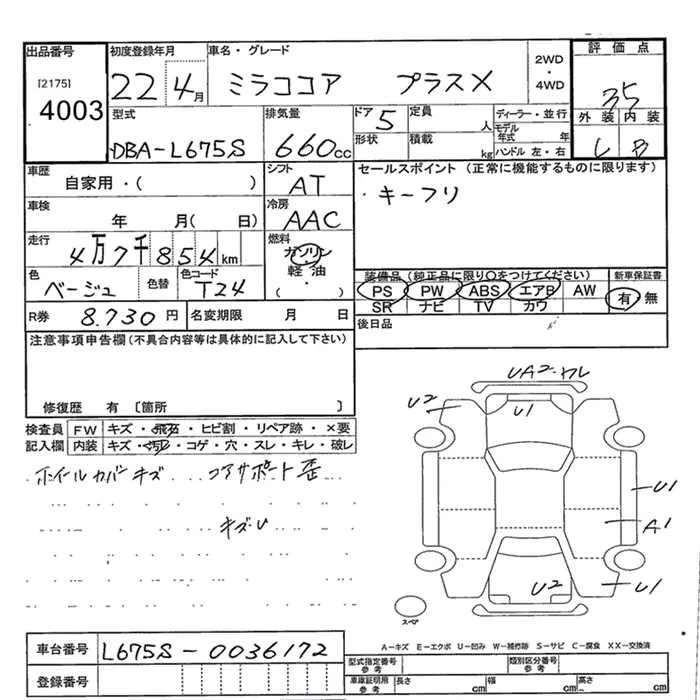 出品番号 初度登録年月 車名・グレード 2WD・4WD 評価点
[2175] 4003 22 4月 ミラココア プラスX 35
型式 排気量 ドア 5 定員 人 ディーラー・並行 外装 内装
DBA-L675S 660cc 形状 積載 kg モデル年式 年 ハンドル 左・右 B
車歴 シフト セールスポイント (正常に機能するものに限ります)
自家用・( ) AT ・キーフリ
車検 冷房
年 月( 日) AAC
走行 燃料
4万7千854km ガソリン・軽油・( )
色 色替 色コード 装備品(純正品に限り○をつけてください) 新車保証書
ベージュ T24 PS PW ABS エアB AW 有・無
SR ナビ TV カワ
R券 8.730円 名変期限 月 日 後日品
注意事項申告欄(不具合内容等は具体的に記入して下さい)
修復歴 有 [箇所 ]
検査員 FW キズ・飛石・ヒビ割・リペア跡・×要
記入欄 内装 キズ・汚れ・コゲ・穴・スレ・キレ・破レ
ホイールカバーキズ コアサポート歪
キズU
UA2・ワレ
U2 U1
U1
A1
U2 U1
スペア
A-キズ E-エクボ U-凹み W-補修跡 S-サビ C-腐食 XX-交換済
車台番号 L675S-0036172
登録番号
型式指定番号 参考 類別区分番号 参考
車庫証明用 参考 長さ cm 幅 cm 高さ cm